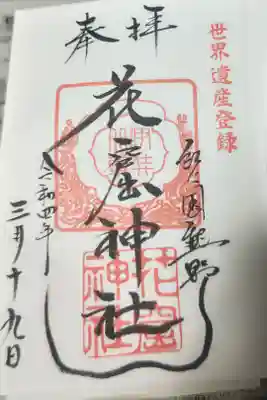 世界遺産登録
奉拝
国熊野
花窟神社
花窟神社
令和四年
三月十九日